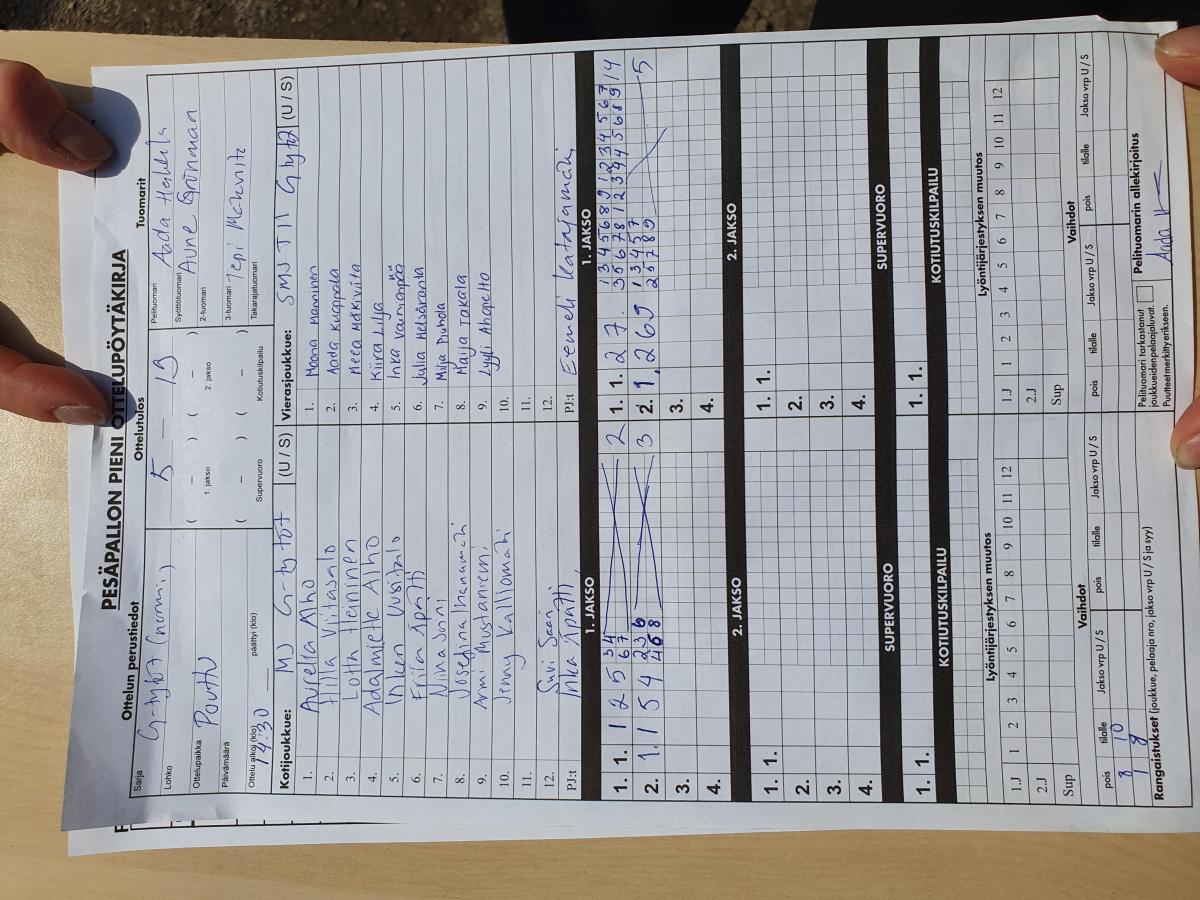 PESÄPALLON PIENI OTTELUPÖYTÄKIRJA
Ottelun perustiedot
Ottelutulos
Tuomarit
Sarja G-tytöt (normi)
Lohko
Ottelupaikka Pouttu
Päivämäärä
Ottelu alkoi (klo) 14.30 päättyi (klo)
5 – 19
( – ) ( – )
1. jakso 2. jakso
( – ) ( – )
Supervuoro Kotiutuskilpailu
Pelituomari Aada Hallila
Syöttötuomari Aune Grönman
2-tuomari
3-tuomari Tepi Mäkivita
Takarajatuomari
Kotijoukkue: MJ G-tytöt (U / S)
1. Aurella Alho
2. Hilla Viitasalo
3. Lotta Heininen
4. Adalmiete Alho
5. Inken Uusitalo
6. Friia Äpätti
7. Niina Soini
8. Josefina Ihanamäki
9. Armi Mustaniemi
10. Jenny Kalliomäki
11.
12. Suvi Saari
PJ:t Inka Äpätti
Vierasjoukkue: SMJ II G tytöt (U / S)
1. Moona Manninen
2. Aada Kuoppala
3. Neea Mäkivita
4. Kiira Lilja
5. Inka Vainionpää
6. Julia Hietaranta
7. Milja Piuhola
8. Maija Takala
9. Lyyli Ahopelto
10.
11.
12.
PJ:t Eemeli Katajamäki
1. JAKSO
1. 1. 1 2 5 3 4 6 7 2
2. 1. 1 5 4 2 3 6 4 6 8 3
3.
4.
1. JAKSO
1. 1. 2 7. 1 3 4 5 6 8 9 1 2 3 4 5 6 7 14
3 5 6 7 8 1 2 3 4 4 5 6 8 9
2. 1, 2 6 9 1 3 4 5 7 5
2 5 7 8 9
3.
4.
2. JAKSO
1. 1.
2.
3.
4.
2. JAKSO
1. 1.
2.
3.
4.
SUPERVUORO
1. 1.
SUPERVUORO
1. 1.
KOTIUTUSKILPAILU
KOTIUTUSKILPAILU
Lyöntijärjestyksen muutos
1.J 1 2 3 4 5 6 7 8 9 10 11 12
2.J
Sup
Lyöntijärjestyksen muutos
1.J 1 2 3 4 5 6 7 8 9 10 11 12
2.J
Sup
Vaihdot
pois tilalle Jakso vrp U / S pois tilalle Jakso vrp U / S
8 10
1 8
Vaihdot
pois tilalle Jakso vrp U / S pois tilalle Jakso vrp U / S
Rangaistukset (joukkue, pelaaja nro, jakso vrp U / S ja syy)
Pelituomari tarkastanut
joukkueidenpelaajaluvat.
Puutteet merkitty erikseen.
Pelituomarin allekirjoitus
Aada H